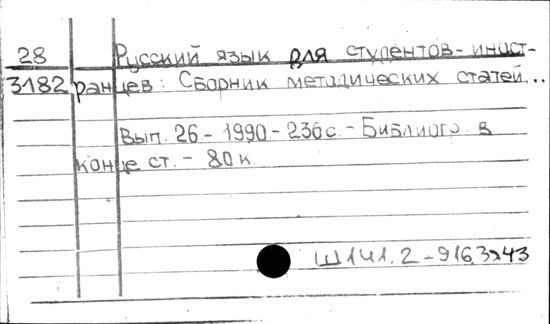 28 Русский язык для студентов-иност-
3182 ранцев: Сборник методических статей...
Вып. 26.- 1990.- 236с.- Библиогр. в
конце ст. - 80к.
Ш141.2-916.3я43